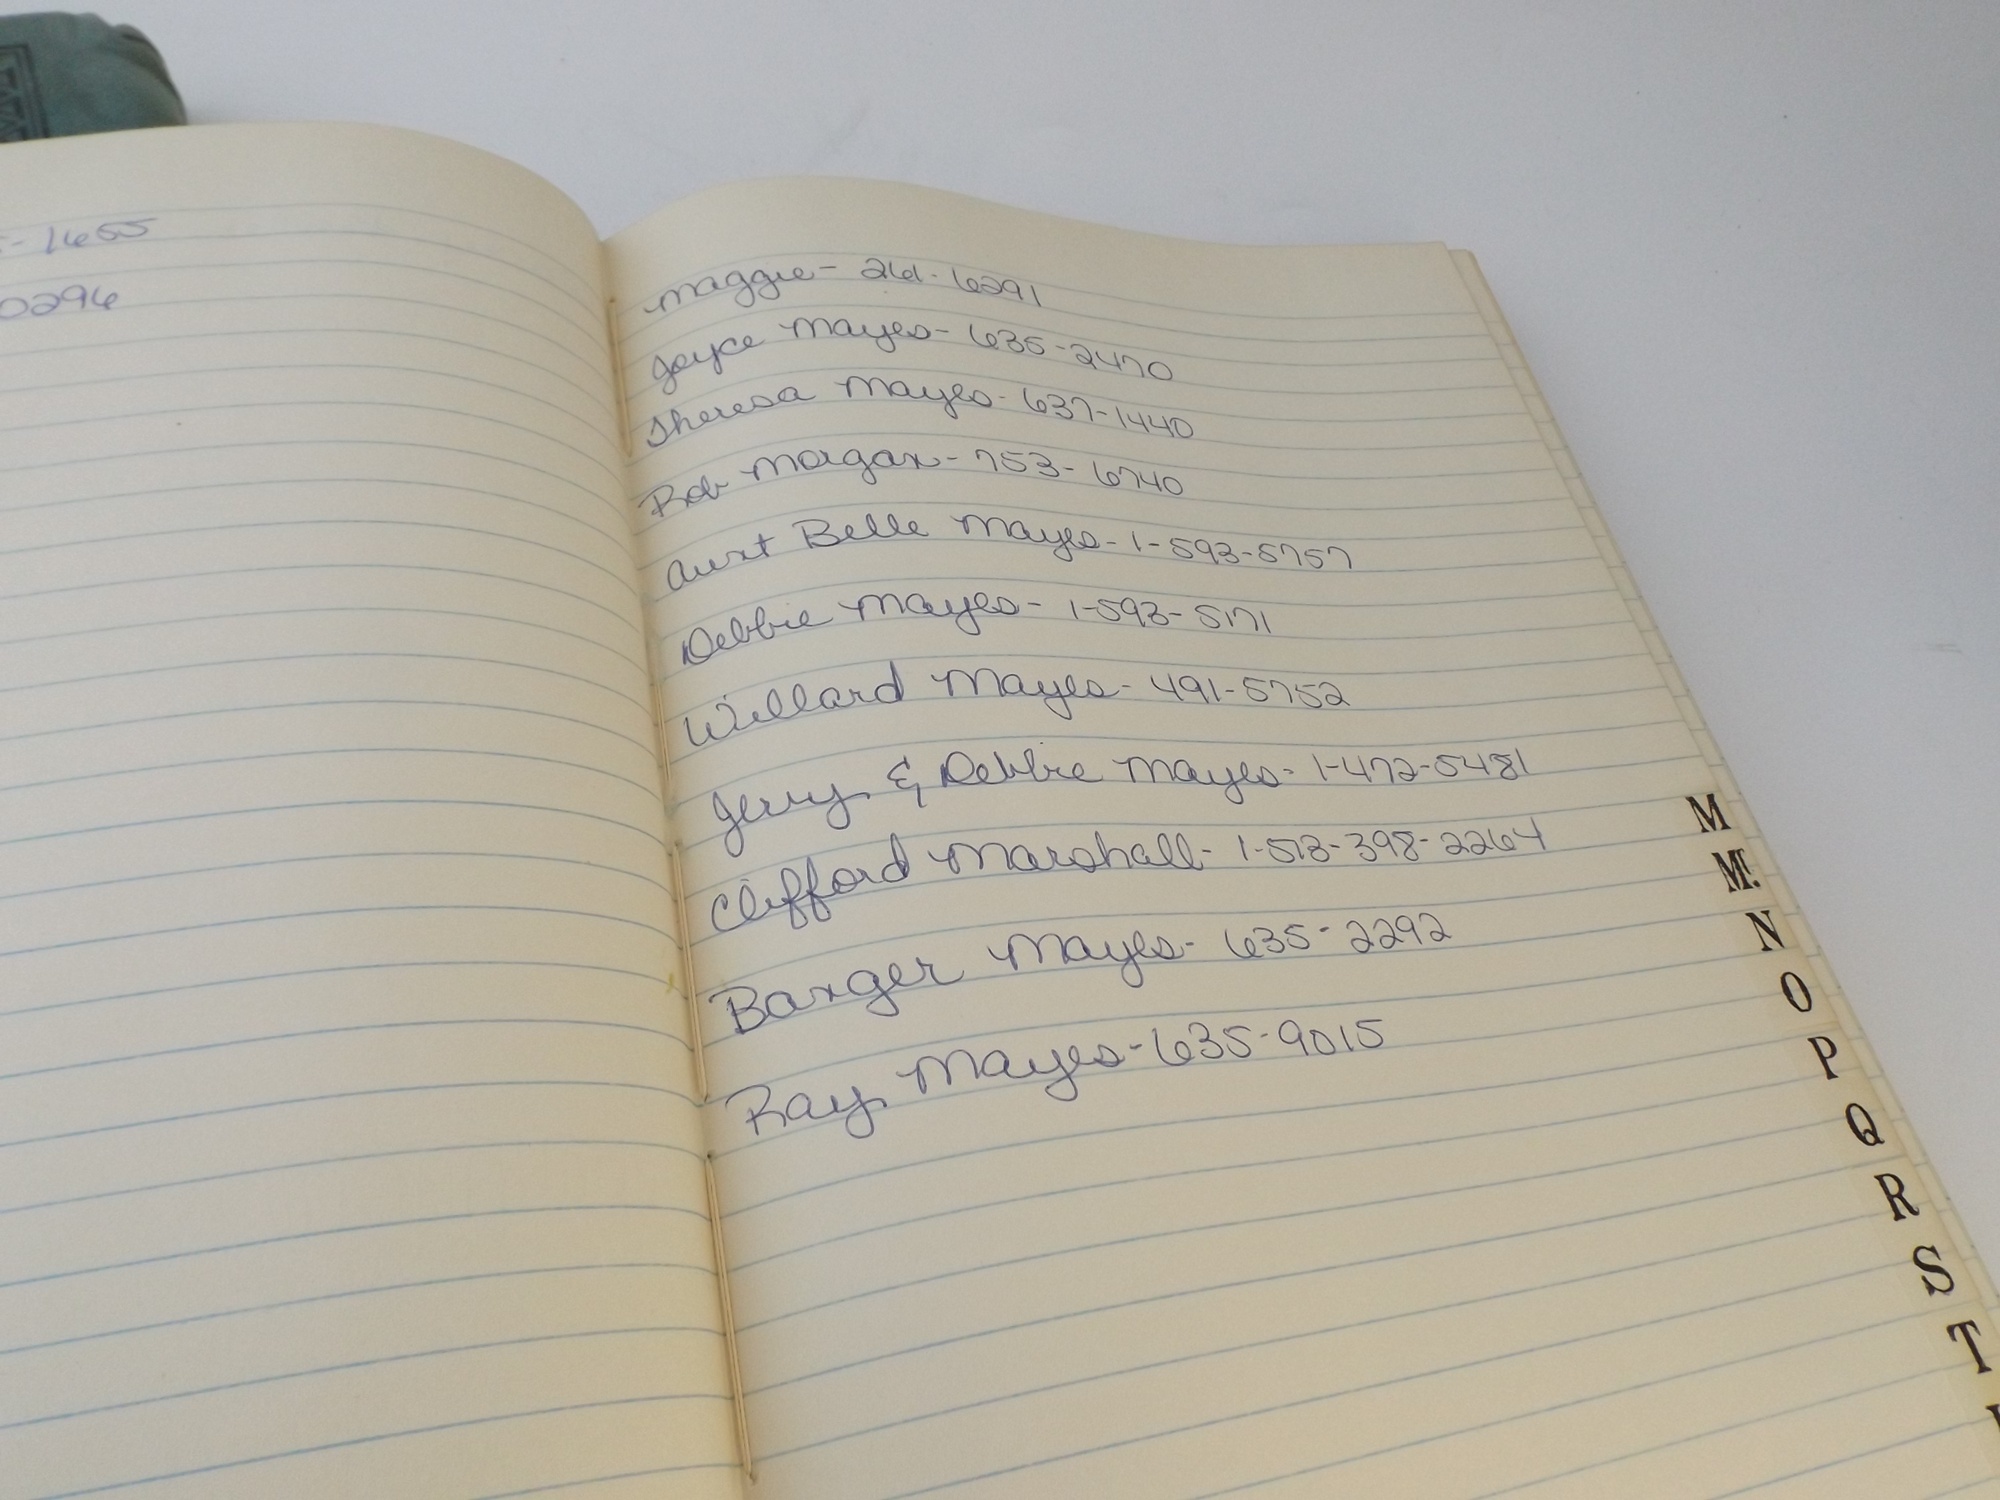 - 1655
0296
Maggie - 261-6291
Joyce Mayes - 635-2470
Theresa Mayes - 637-1440
Rob Morgan - 753-6740
Aunt Belle Mayes - 1-593-5757
Debbie Mayes - 1-593-5171
Willard Mayes - 491-5752
Jerry & Debbie Mayes - 1-472-5481
Clifford Marshall - 1-513-398-2264
Barger Mayes - 635-2292
Ray Mayes - 635-9015
M
Mc.
N
O
P
Q
R
S
T